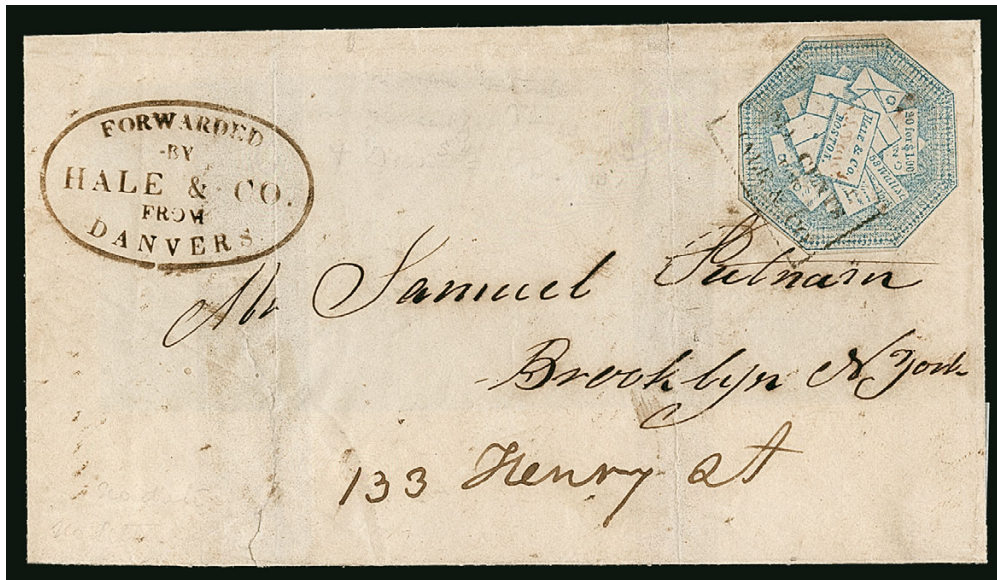 FORWARDED
BY
HALE & CO.
FROM
DANVERS
20 for $1.00
HALE & Co.
BOSTON.
Mr Samuel Putnam
Brooklyn N York
133 Henry St